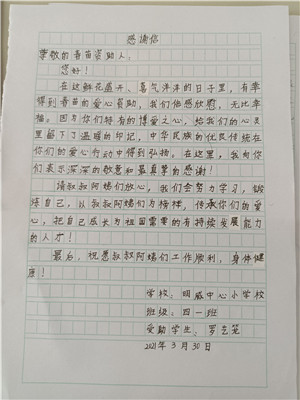 感谢信
尊敬的春苗资助人:
您好!
在这鲜花盛开、喜气洋洋的日子里,有幸
得到春苗的爱心资助,我们倍感欣慰,无比幸
福。因为你们特有的博爱之心,给我们的心灵
里留下了温暖的印记,中华民族的优良传统在
你们的爱心行动中得到弘扬。在这里,我向你
们表示深深的敬意和最真挚的感谢!
请叔叔阿姨们放心,我们会努力学习,锻
炼自己,以叔叔阿姨们为榜样,传承你们的爱
心,把自己成长为祖国需要的有持续发展能力
的人才!
最后,祝愿叔叔阿姨们工作顺利,身体健
康!
学校:明威中心小学校
班级:四一班
受助学生:罗艺芫
2021年3月30日